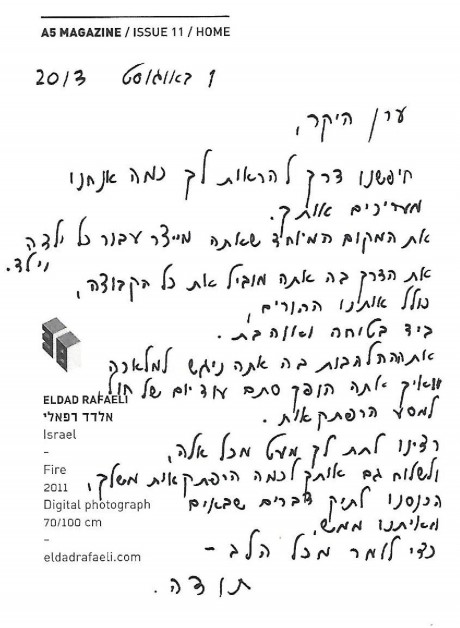 A5 MAGAZINE / ISSUE 11 / HOME
1 באוגוסט 2013
ערן היקר,
חיפשנו דרך להראות לך כמה אנחנו
מעריכים אותך.
את המקום המיוחד שאתה מייצר עבור כל ילדה
וילד.
את הדרך בה אתה מוביל את כל הקבוצה,
כולל אותנו ההורים,
ביד בטוחה ואוהבת.
את ההתלהבות בה אתה ניגש למלאכה
ואיך אתה הופך סתם עוד יום של חול
למסע הרפתקאות.
רצינו לתת לך מעט מכל אלה,
ולשלוח גם אותך לכמה הרפתקאות משלך,
הכנסנו לתיק דברים שבאים
מאיתנו ממש,
כדי לומר מכל הלב -
תודה.
ELDAD RAFAELI
אלדד רפאלי
Israel
–
Fire
2011
Digital photograph
70/100 cm
–
eldadrafaeli.com